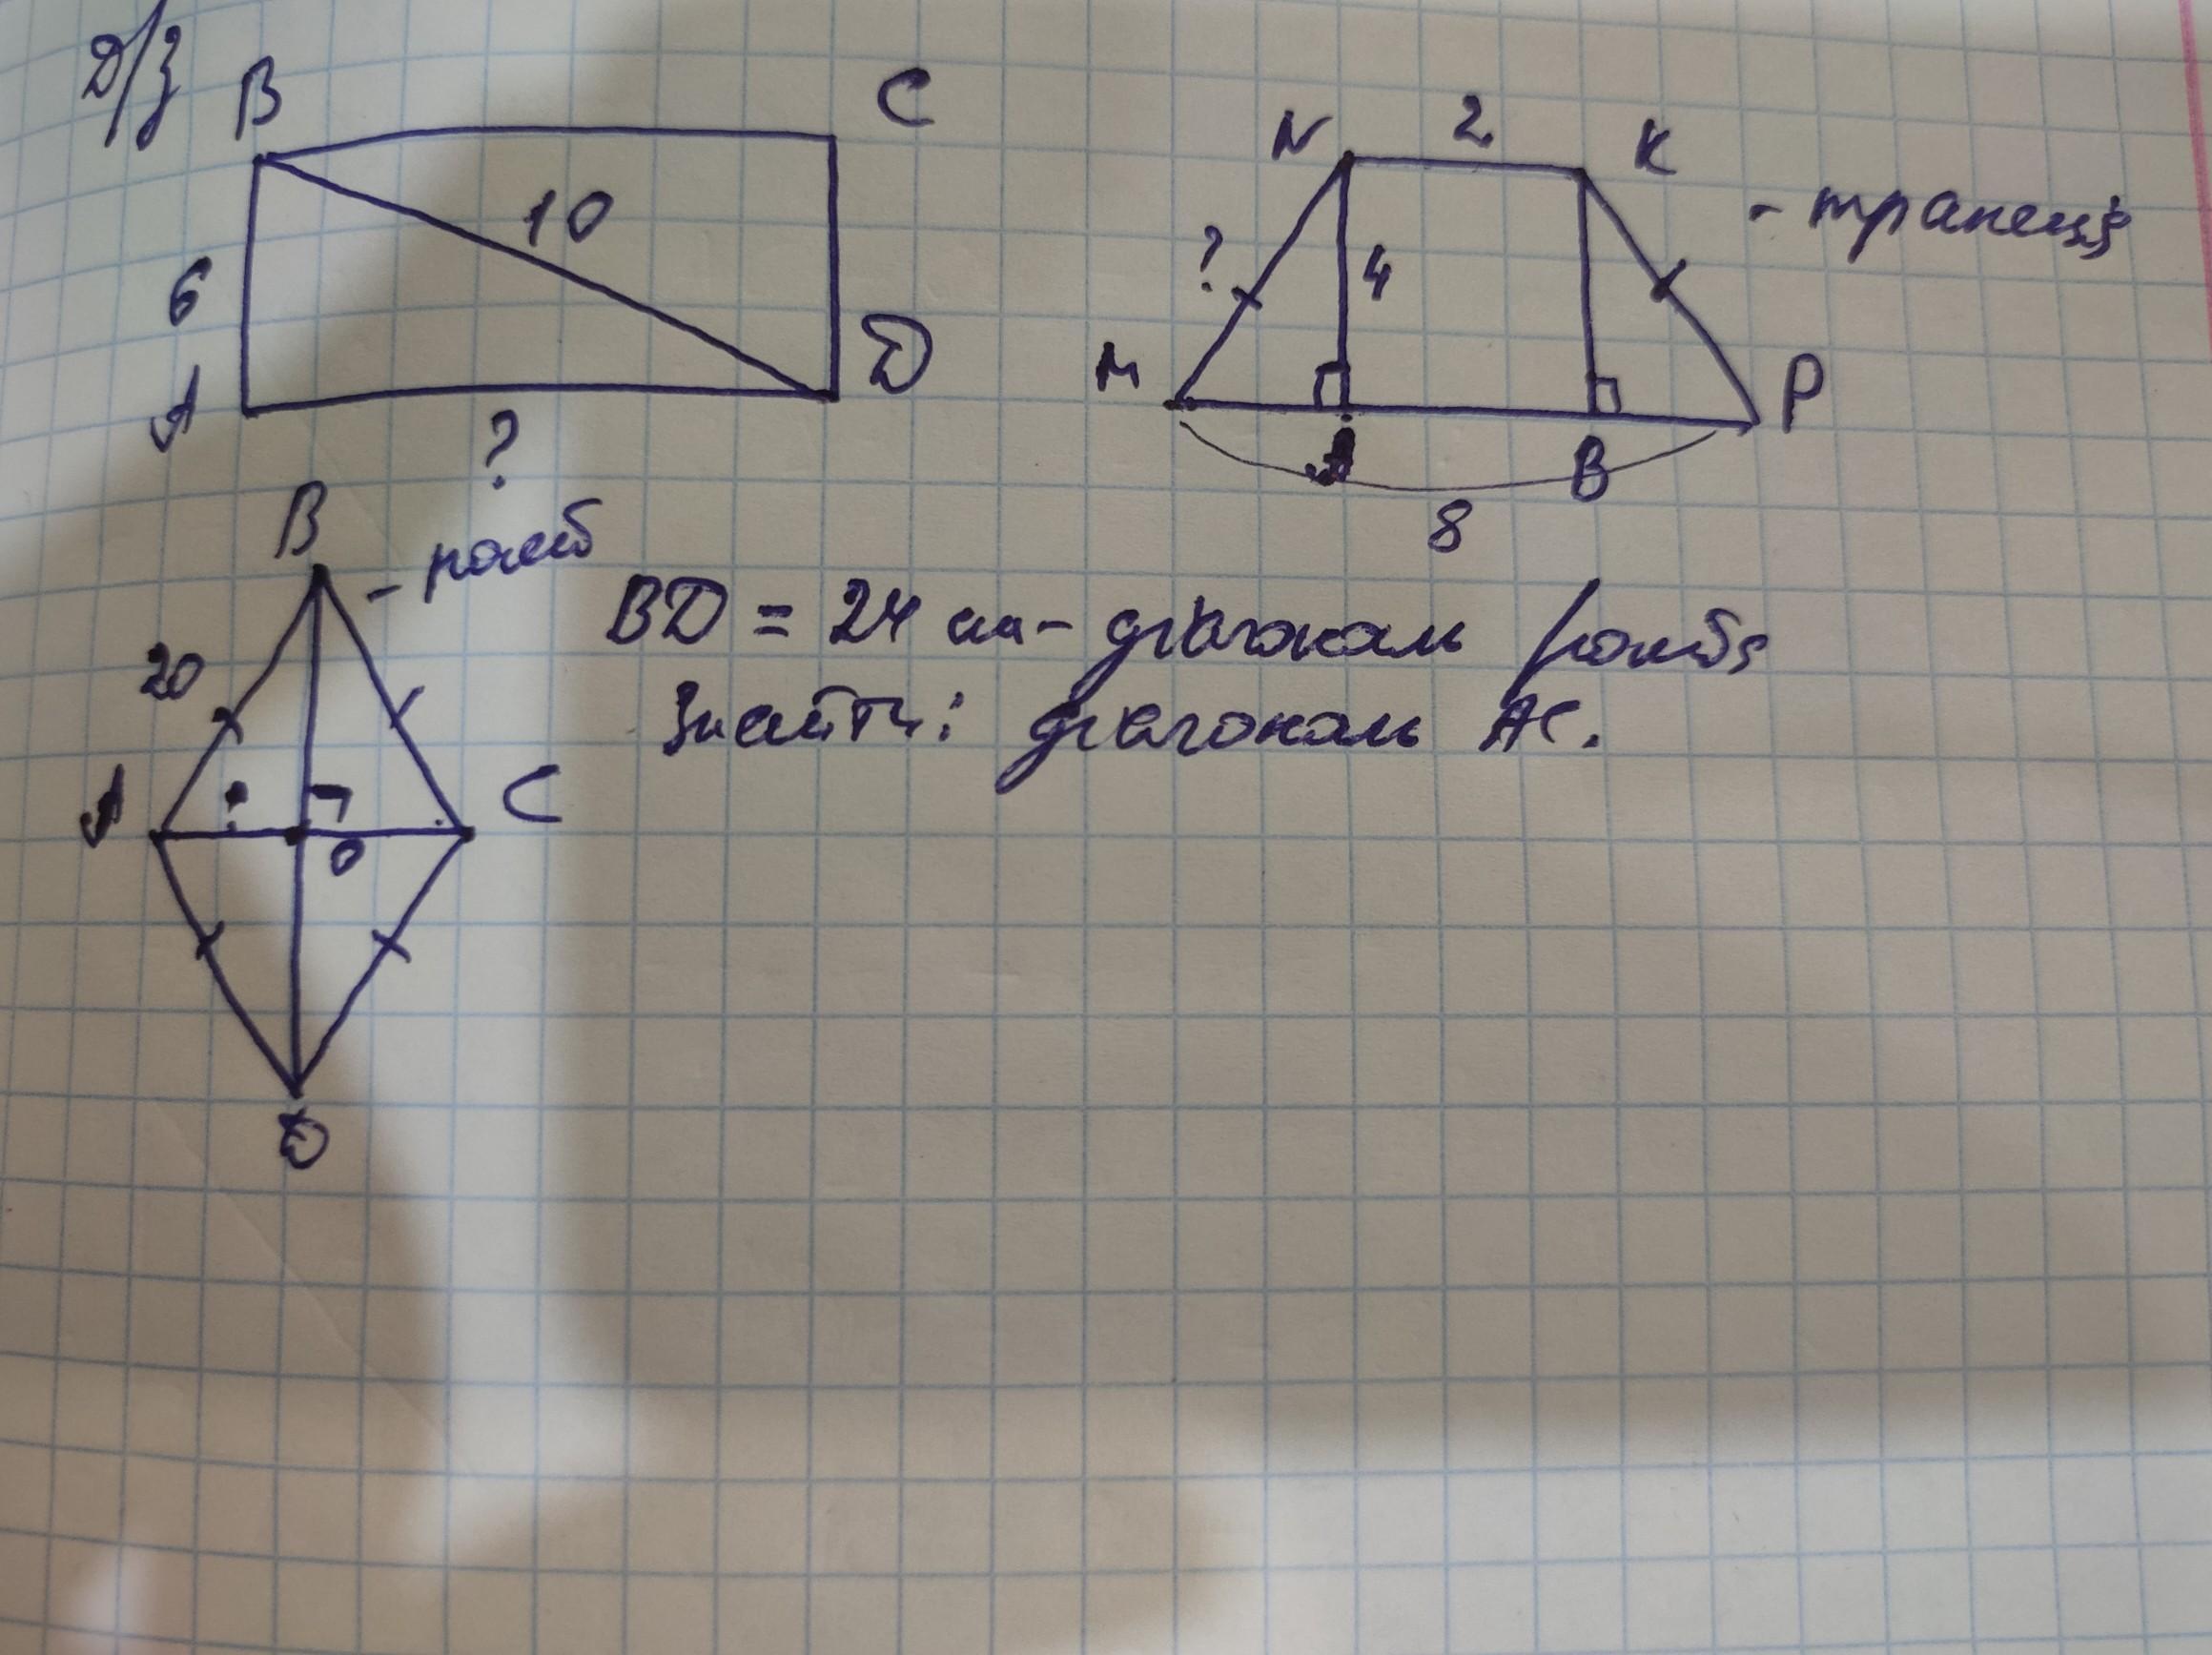 Д/з
B C
10
6
A D
?
N 2 K
- трапеція
? 4
M P
A B
8
B
- ромб
20
A C
?
O
D
BD = 24 см - діагональ ромба
Знайти: діагональ AC.